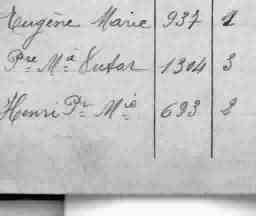 Eugène Marie 937 1
Pre Ma 1304 3
Henri Pr Mie 693 2